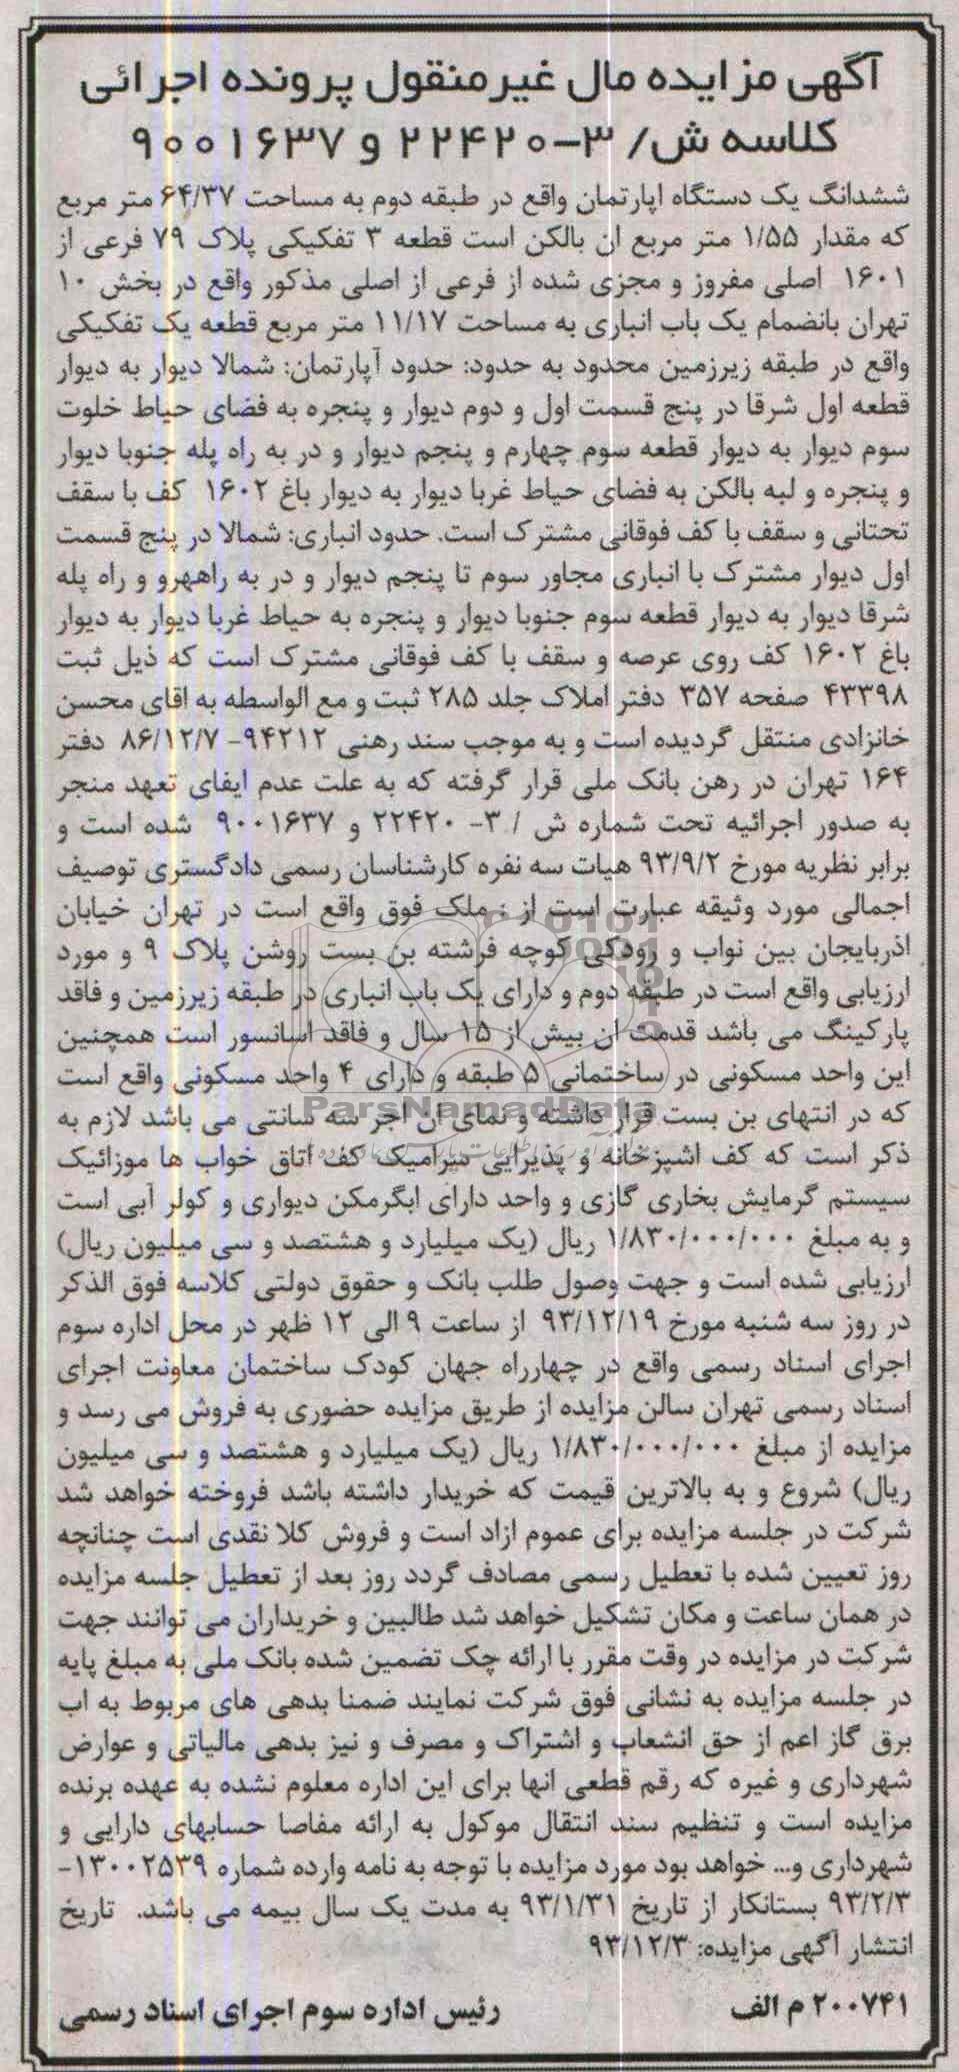 آگهی مزایده مال غیرمنقول پرونده اجرائی
کلاسه ش/ ۳-۲۲۴۲۰ و ۹۰۰۱۶۳۷
ششدانگ یک دستگاه اپارتمان واقع در طبقه دوم به مساحت ۶۴/۳۷ متر مربع
که مقدار ۱/۵۵ متر مربع ان بالکن است قطعه ۳ تفکیکی پلاک ۷۹ فرعی از
۱۶۰۱ اصلی مفروز و مجزی شده از فرعی از اصلی مذکور واقع در بخش ۱۰
تهران بانضمام یک باب انباری به مساحت ۱۱/۱۷ متر مربع قطعه یک تفکیکی
واقع در طبقه زیرزمین محدود به حدود: حدود آپارتمان: شمالا دیوار به دیوار
قطعه اول شرقا در پنج قسمت اول و دوم دیوار و پنجره به فضای حیاط خلوت
سوم دیوار به دیوار قطعه سوم چهارم و پنجم دیوار و در به راه پله جنوبا دیوار
و پنجره و لبه بالکن به فضای حیاط غربا دیوار به دیوار باغ ۱۶۰۲ کف با سقف
تحتانی و سقف با کف فوقانی مشترک است. حدود انباری: شمالا در پنج قسمت
اول دیوار مشترک با انباری مجاور سوم تا پنجم دیوار و در به راههرو و راه پله
شرقا دیوار به دیوار قطعه سوم جنوبا دیوار و پنجره به حیاط غربا دیوار به دیوار
باغ ۱۶۰۲ کف روی عرصه و سقف با کف فوقانی مشترک است که ذیل ثبت
۴۳۳۹۸ صفحه ۳۵۷ دفتر املاک جلد ۲۸۵ ثبت و مع الواسطه به اقای محسن
خانزادی منتقل گردیده است و به موجب سند رهنی ۹۴۲۱۲- ۸۶/۱۲/۷ دفتر
۱۶۴ تهران در رهن بانک ملی قرار گرفته که به علت عدم ایفای تعهد منجر
به صدور اجرائیه تحت شماره ش / ۳- ۲۲۴۲۰ و ۹۰۰۱۶۳۷ شده است و
برابر نظریه مورخ ۹۳/۹/۲ هیات سه نفره کارشناسان رسمی دادگستری توصیف
اجمالی مورد وثیقه عبارت است از : ملک فوق واقع است در تهران خیابان
اذربایجان بین نواب و رودکی کوچه فرشته بن بست روشن پلاک ۹ و مورد
ارزیابی واقع است در طبقه دوم و دارای یک باب انباری در طبقه زیرزمین و فاقد
پارکینگ می باشد قدمت ان بیش از ۱۵ سال و فاقد اسانسور است همچنین
این واحد مسکونی در ساختمانی ۵ طبقه و دارای ۴ واحد مسکونی واقع است
که در انتهای بن بست قرار داشته و نمای ان اجر سه سانتی می باشد لازم به
ذکر است که کف اشپزخانه و پذیرایی سرامیک کف اتاق خواب ها موزائیک
سیستم گرمایش بخاری گازی و واحد دارای ابگرمکن دیواری و کولر آبی است
و به مبلغ ۱/۸۳۰/۰۰۰/۰۰۰ ریال (یک میلیارد و هشتصد و سی میلیون ریال)
ارزیابی شده است و جهت وصول طلب بانک و حقوق دولتی کلاسه فوق الذکر
در روز سه شنبه مورخ ۹۳/۱۲/۱۹ از ساعت ۹ الی ۱۲ ظهر در محل اداره سوم
اجرای اسناد رسمی واقع در چهارراه جهان کودک ساختمان معاونت اجرای
اسناد رسمی تهران سالن مزایده از طریق مزایده حضوری به فروش می رسد و
مزایده از مبلغ ۱/۸۳۰/۰۰۰/۰۰۰ ریال (یک میلیارد و هشتصد و سی میلیون
ریال) شروع و به بالاترین قیمت که خریدار داشته باشد فروخته خواهد شد
شرکت در جلسه مزایده برای عموم ازاد است و فروش کلا نقدی است چنانچه
روز تعیین شده با تعطیل رسمی مصادف گردد روز بعد از تعطیل جلسه مزایده
در همان ساعت و مکان تشکیل خواهد شد طالبین و خریداران می توانند جهت
شرکت در مزایده در وقت مقرر با ارائه چک تضمین شده بانک ملی به مبلغ پایه
در جلسه مزایده به نشانی فوق شرکت نمایند ضمنا بدهی های مربوط به اب
برق گاز اعم از حق انشعاب و اشتراک و مصرف و نیز بدهی مالیاتی و عوارض
شهرداری و غیره که رقم قطعی انها برای این اداره معلوم نشده به عهده برنده
مزایده است و تنظیم سند انتقال موکول به ارائه مفاصا حسابهای دارایی و
شهرداری و... خواهد بود مورد مزایده با توجه به نامه وارده شماره ۱۳۰۰۲۵۳۹-
۹۳/۲/۳ بستانکار از تاریخ ۹۳/۱/۳۱ به مدت یک سال بیمه می باشد. تاریخ
انتشار آگهی مزایده: ۹۳/۱۲/۳
۲۰۰۷۴۱ م الف رئیس اداره سوم اجرای اسناد رسمی
ParsNamadData